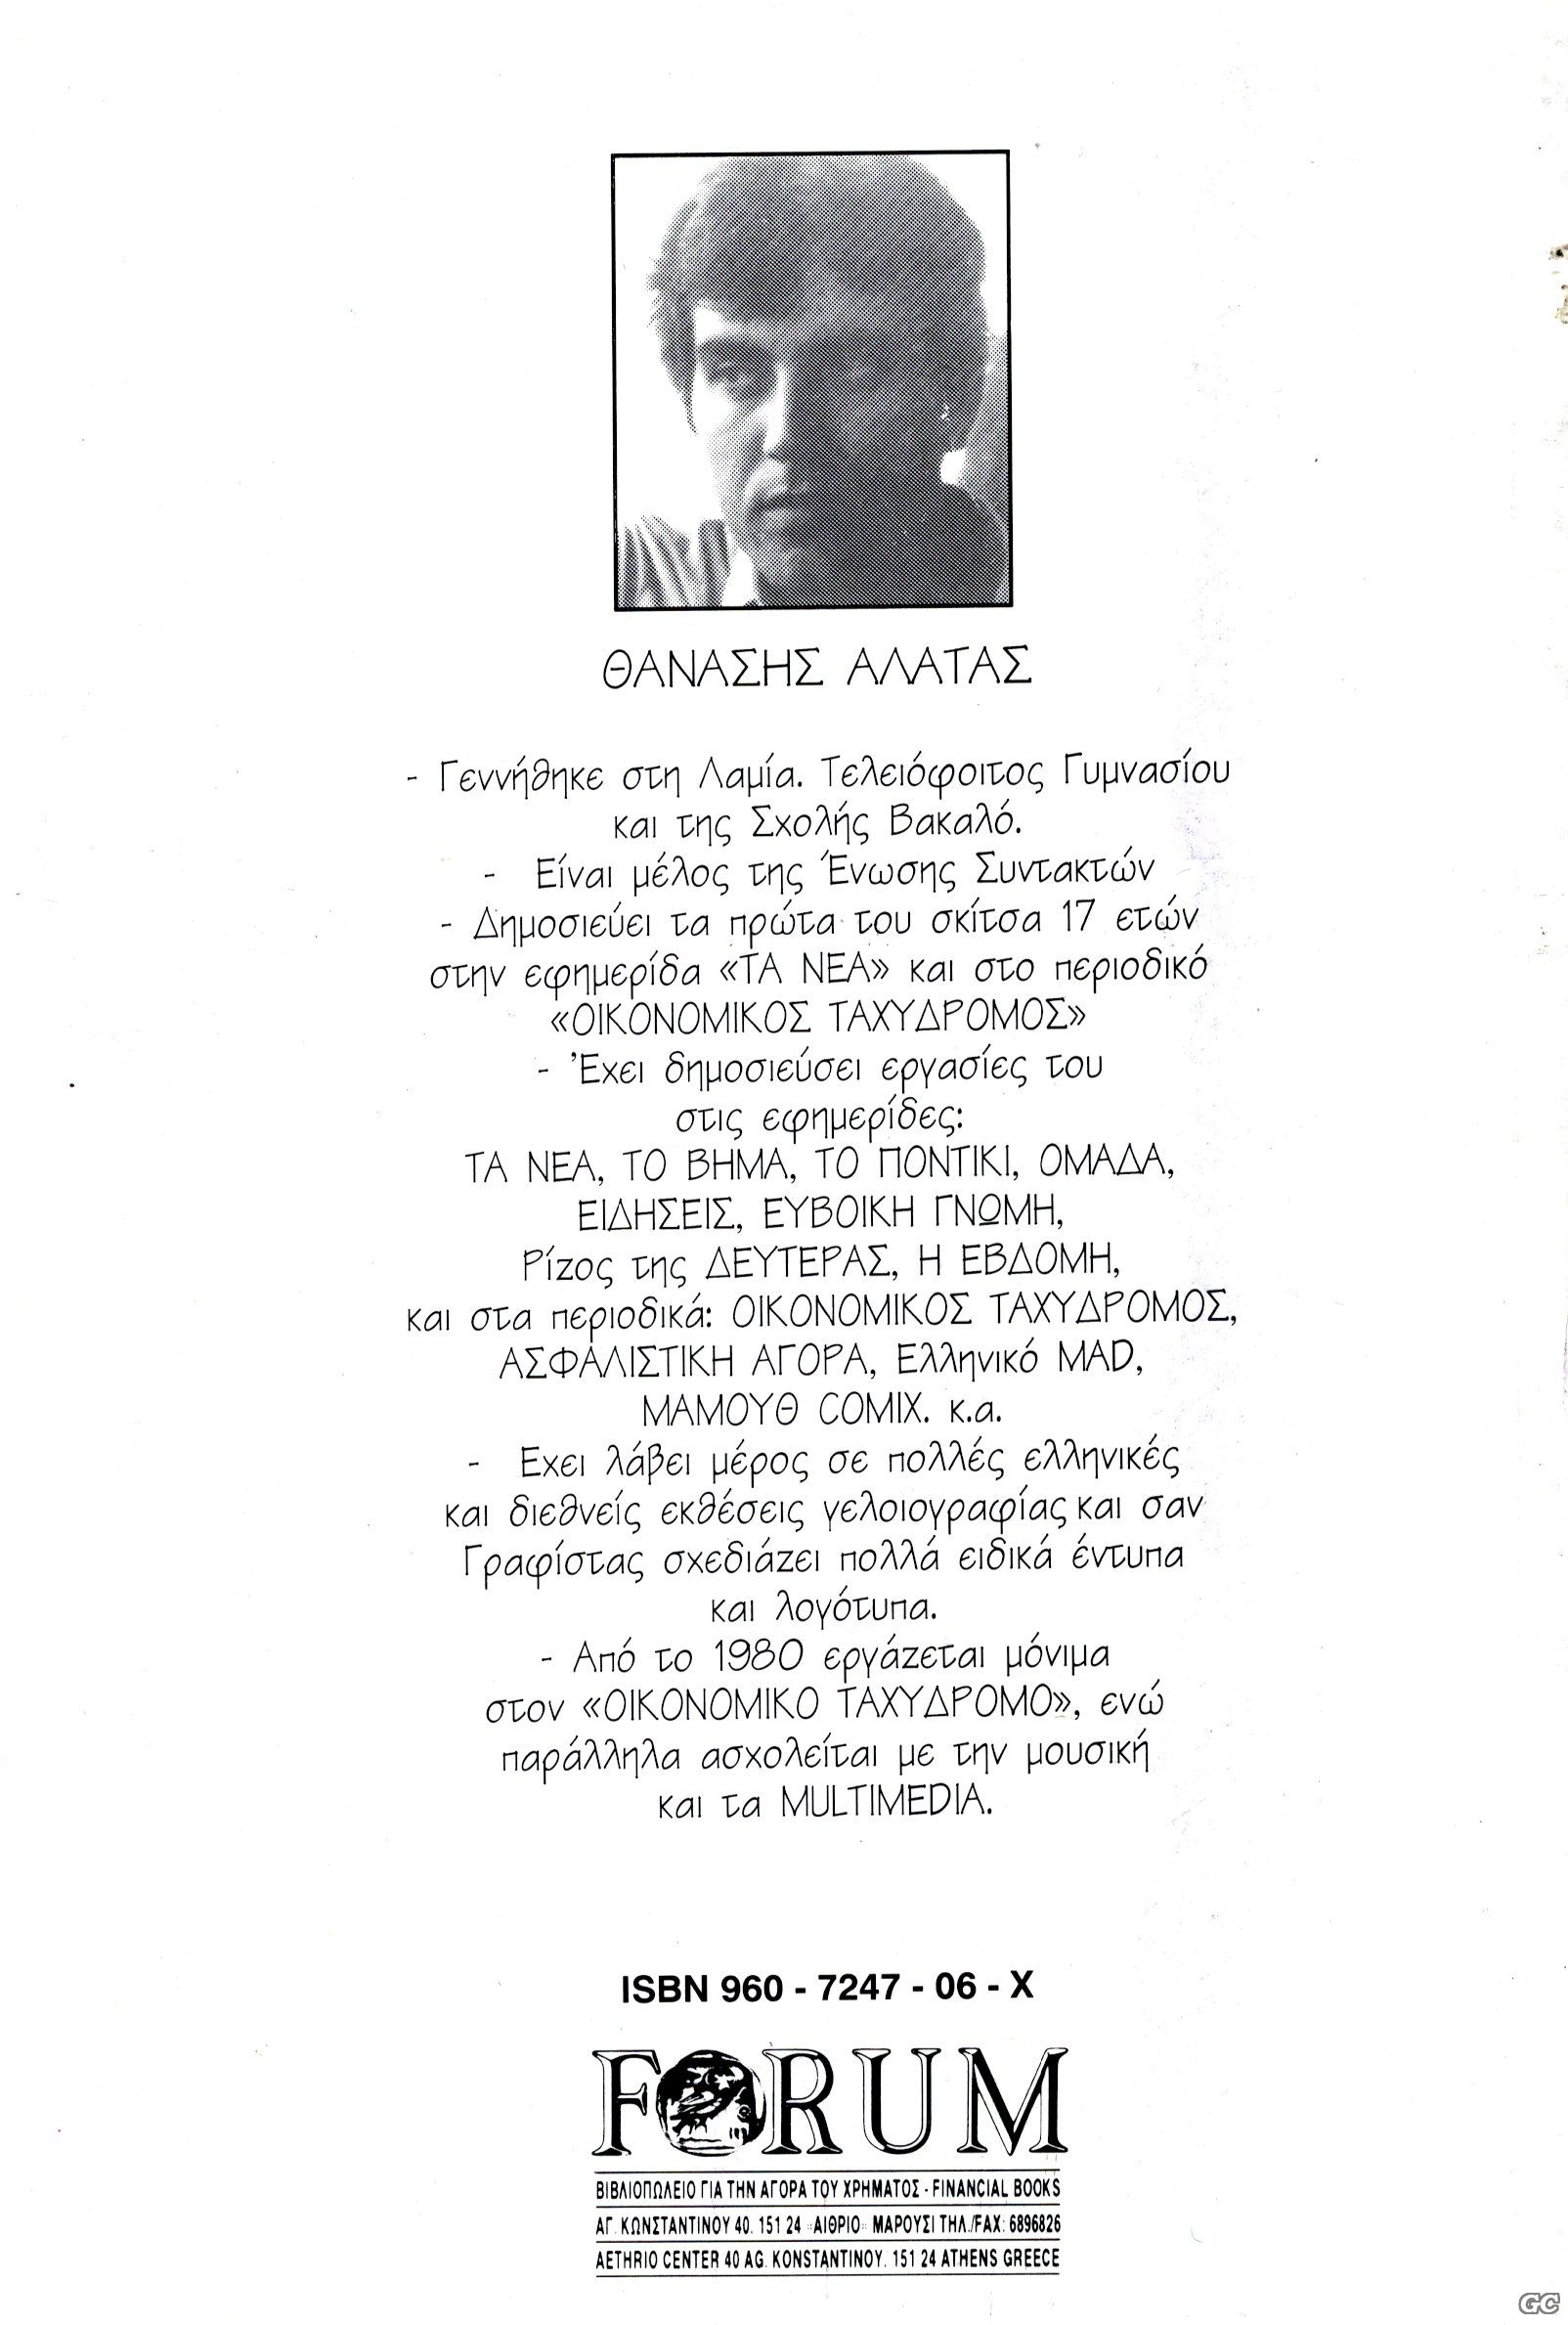 ΘΑΝΑΣΗΣ ΑΛΑΤΑΣ
- Γεννήθηκε στη Λαμία. Τελειόφοιτος Γυμνασίου
και της Σχολής Βακαλό.
- Είναι μέλος της Ένωσης Συντακτών
- Δημοσιεύει τα πρώτα του σκίτσα 17 ετών
στην εφημερίδα «ΤΑ ΝΕΑ» και στο περιοδικό
«ΟΙΚΟΝΟΜΙΚΟΣ ΤΑΧΥΔΡΟΜΟΣ»
- Έχει δημοσιεύσει εργασίες του
στις εφημερίδες:
ΤΑ ΝΕΑ, ΤΟ ΒΗΜΑ, ΤΟ ΠΟΝΤΙΚΙ, ΟΜΑΔΑ,
ΕΙΔΗΣΕΙΣ, ΕΥΒΟΙΚΗ ΓΝΩΜΗ,
Ρίζος της ΔΕΥΤΕΡΑΣ, Η ΕΒΔΟΜΗ,
και στα περιοδικά: ΟΙΚΟΝΟΜΙΚΟΣ ΤΑΧΥΔΡΟΜΟΣ,
ΑΣΦΑΛΙΣΤΙΚΗ ΑΓΟΡΑ, Ελληνικό MAD,
ΜΑΜΟΥΘ COMIX. κ.α.
- Εχει λάβει μέρος σε πολλές ελληνικές
και διεθνείς εκθέσεις γελοιογραφίας και σαν
Γραφίστας σχεδιάζει πολλά ειδικά έντυπα
και λογότυπα.
- Από το 1980 εργάζεται μόνιμα
στον «ΟΙΚΟΝΟΜΙΚΟ ΤΑΧΥΔΡΟΜΟ», ενώ
παράλληλα ασχολείται με την μουσική
και τα MULTIMEDIA.
ISBN 960 - 7247 - 06 - X
FORUM
ΒΙΒΛΙΟΠΩΛΕΙΟ ΓΙΑ ΤΗΝ ΑΓΟΡΑ ΤΟΥ ΧΡΗΜΑΤΟΣ - FINANCIAL BOOKS
ΑΓ. ΚΩΝΣΤΑΝΤΙΝΟΥ 40. 151 24 «ΑΙΘΡΙΟ» ΜΑΡΟΥΣΙ ΤΗΛ./FAX: 6896826
AETHRIO CENTER 40 AG. KONSTANTINOY. 151 24 ATHENS GREECE
GC